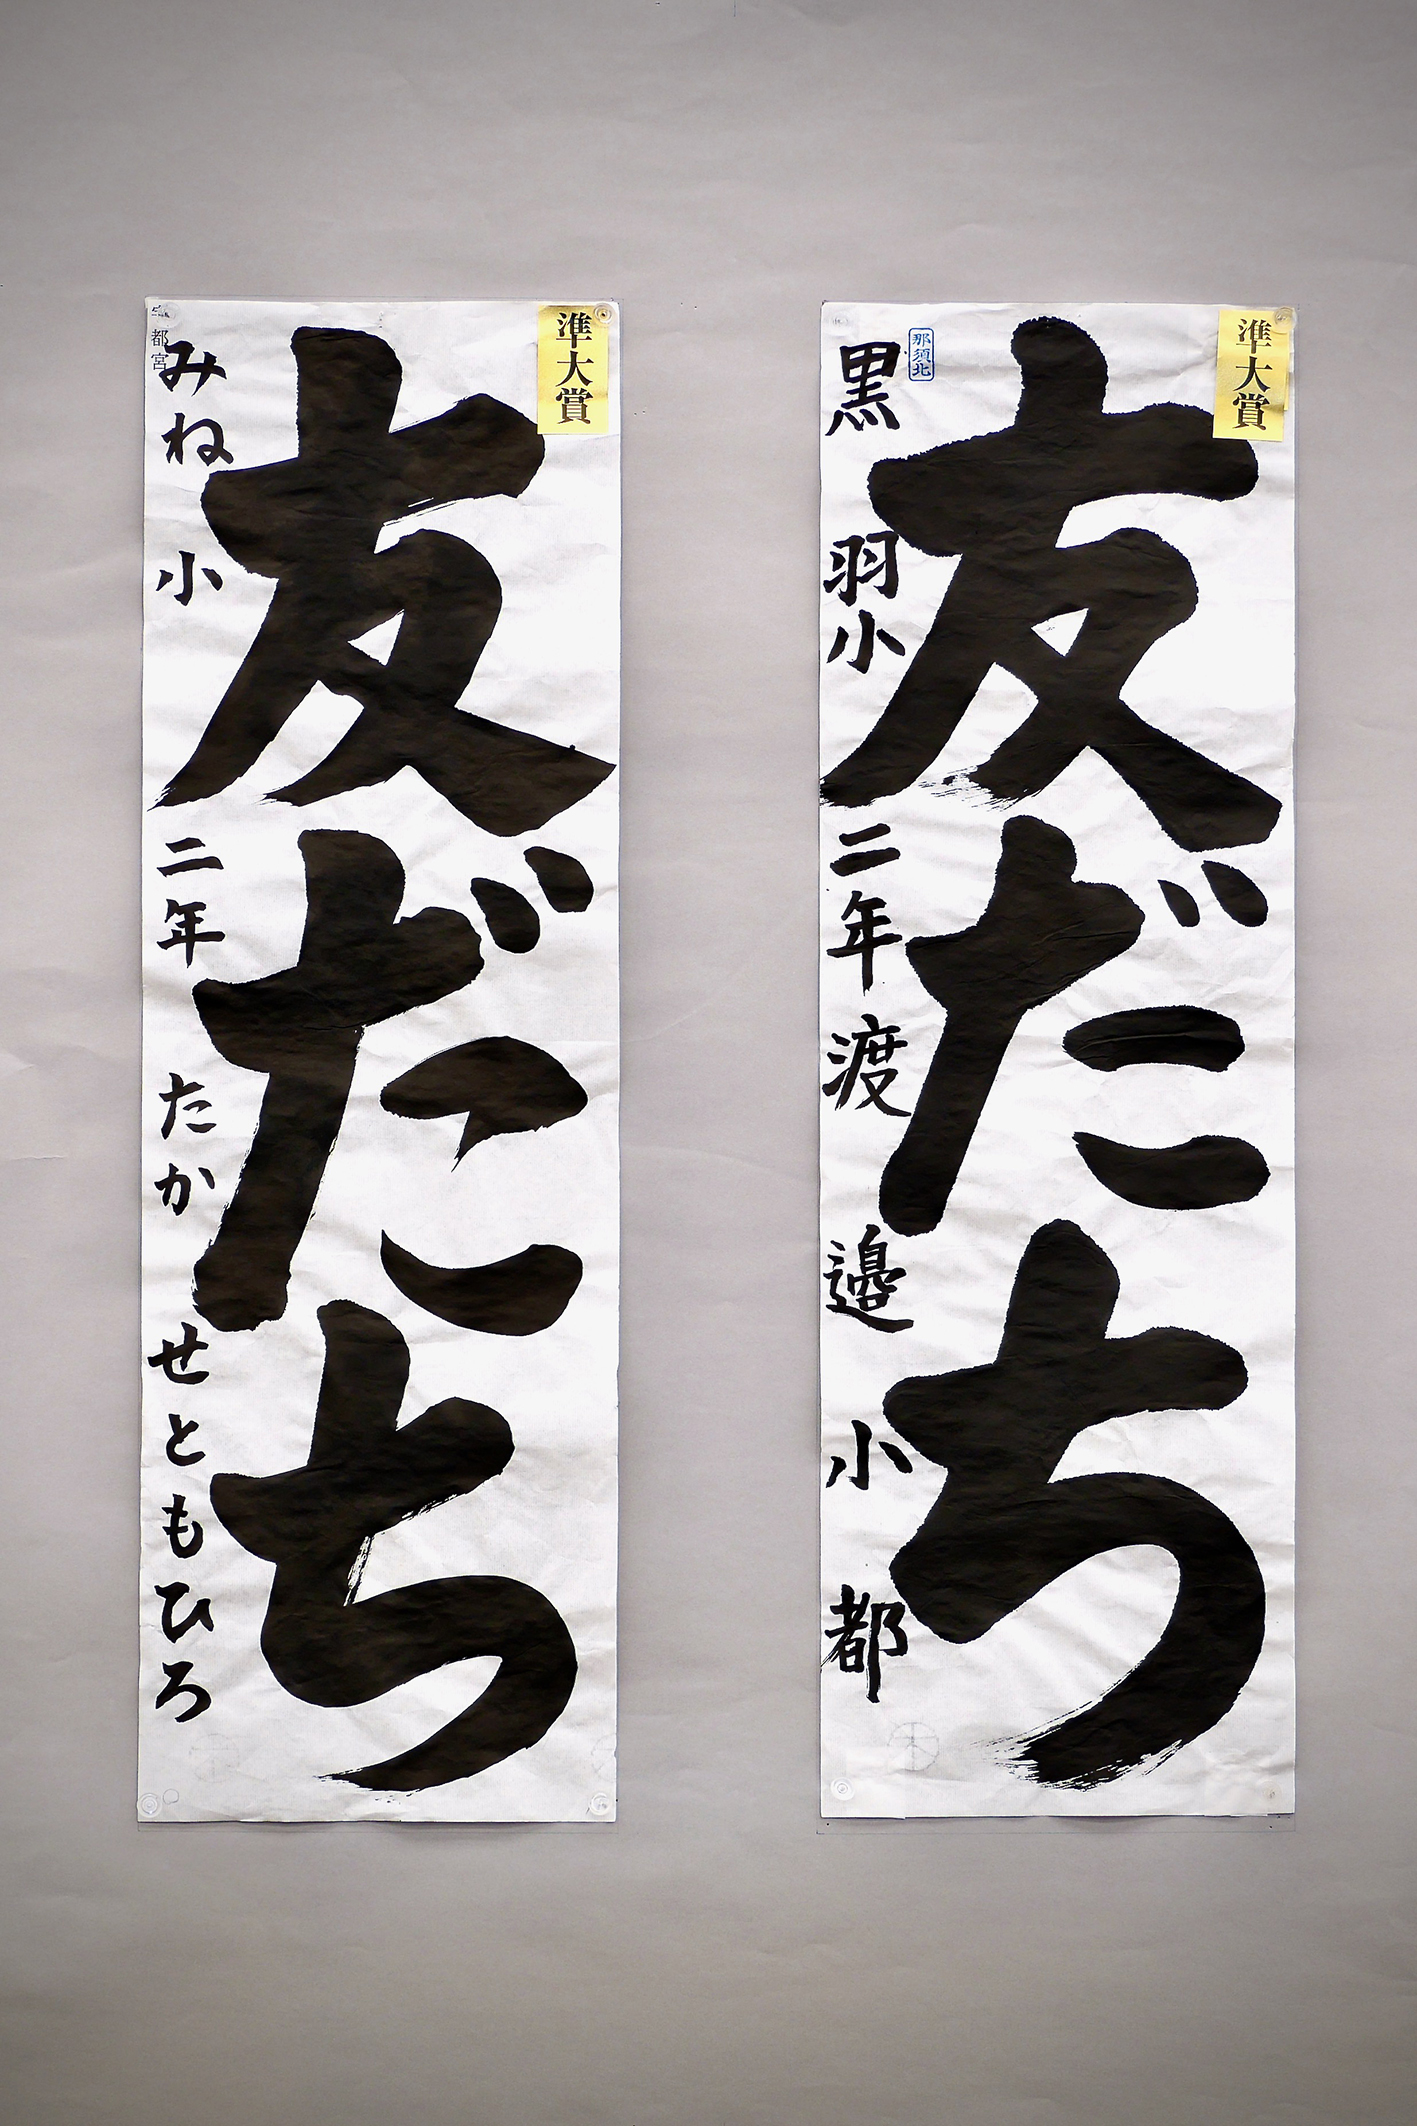 準大賞
友だち
那須北
黒羽小 二年 渡邉 小都
準大賞
友だち
都宮
みね小 二年 たかせともひろ